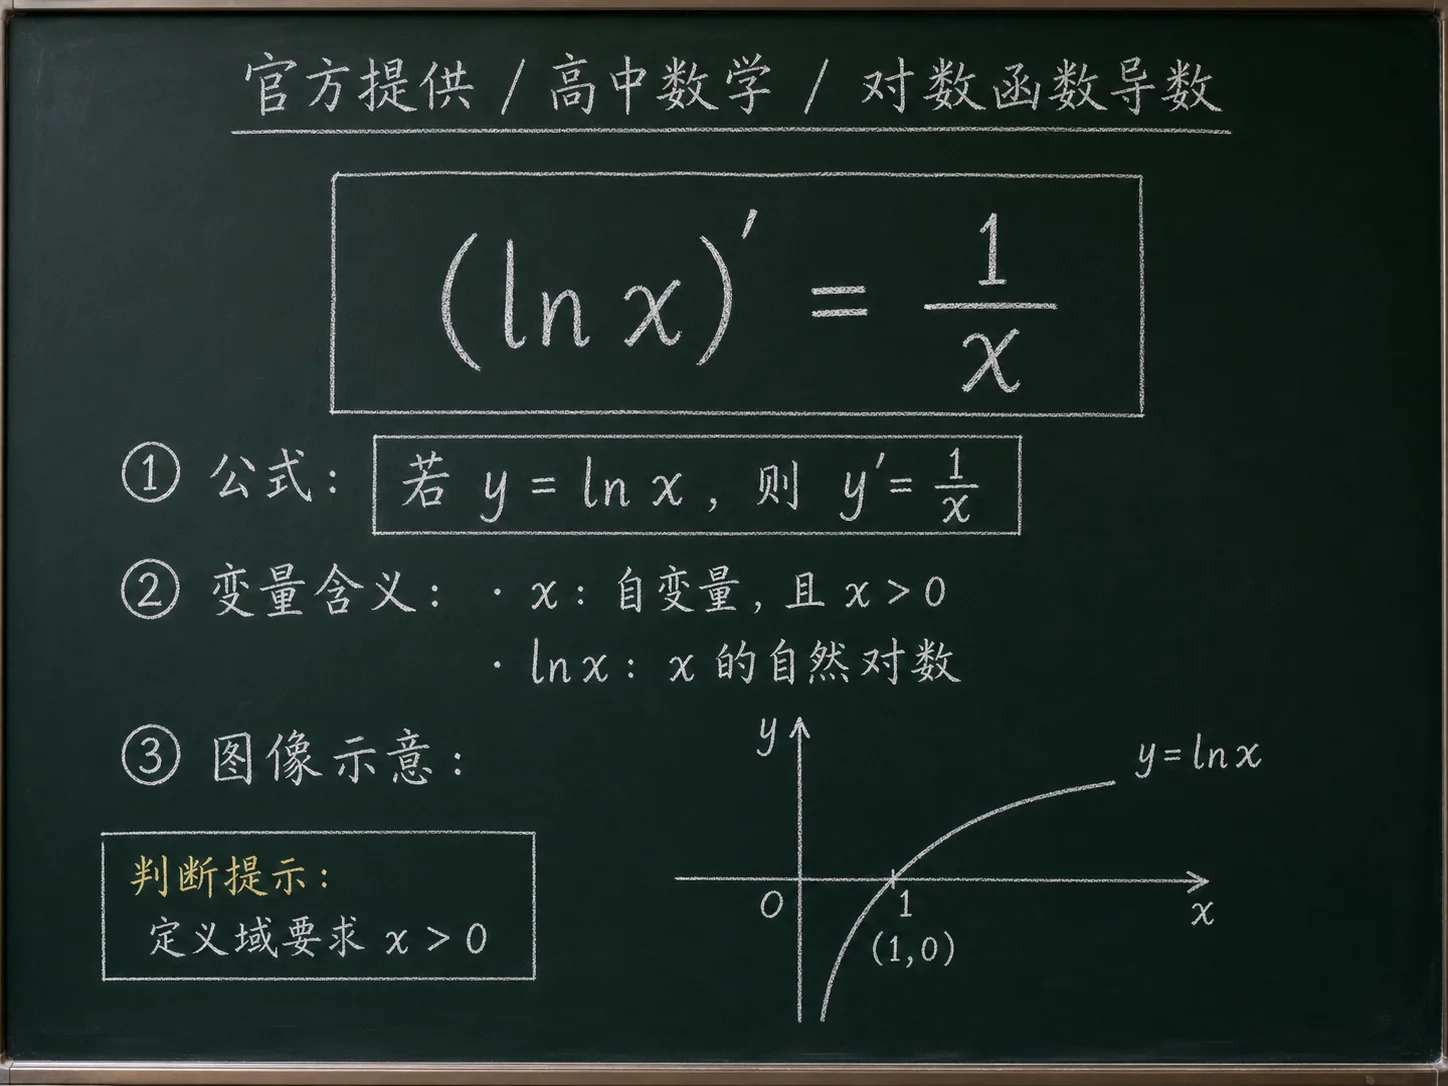 官方提供 / 高中数学 / 对数函数导数
(ln x)′ = 1/x
① 公式： 若 y = ln x , 则 y′ = 1/x
② 变量含义： · x : 自变量, 且 x > 0
· ln x : x 的自然对数
③ 图像示意：
判断提示：
定义域要求 x > 0
y
y = ln x
O
1
x
(1,0)